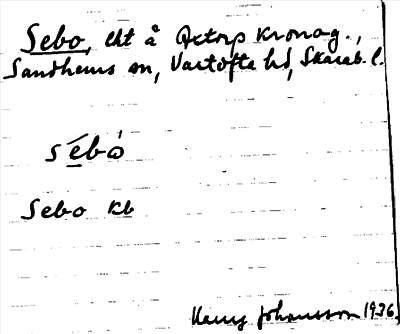 Sebo, lht å Actorp Kronog.,
Sandhems sn, Vartofta hd, Skarab. l.
sébò
Sebo kb
Harry Johansson 1936.